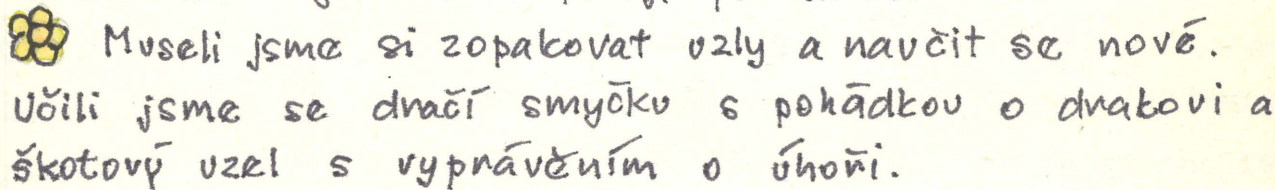 Museli jsme si zopakovat uzly a naučit se nové.
Učili jsme se dračí smyčku s pohádkou o drakovi a
škotový uzel s vyprávěním o úhoři.